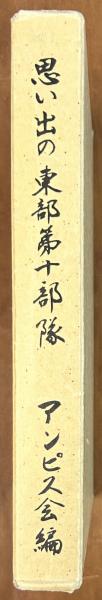 思い出の東部第十部隊 アンピス会編